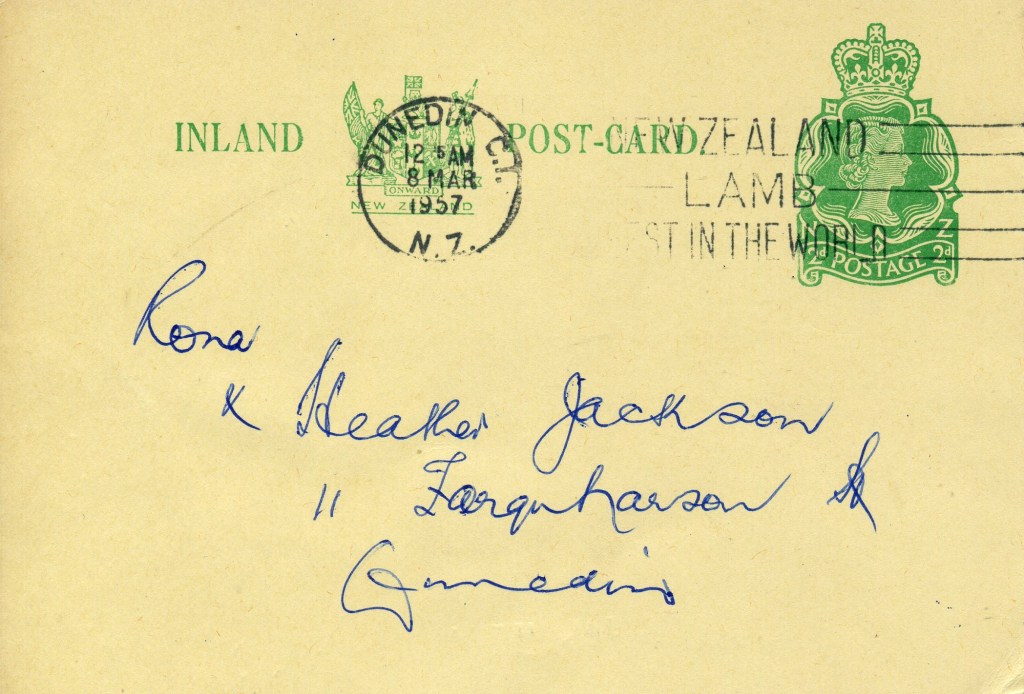 INLAND POST-CARD
ONWARD
NEW ZEALAND
DUNEDIN C.1.
12 5 AM
8 MAR
1957
N.Z.
NEW ZEALAND
LAMB
BEST IN THE WORLD
N Z
2d POSTAGE 2d
Rona
& Heather Jackson
11 Farquharson St
Dunedin